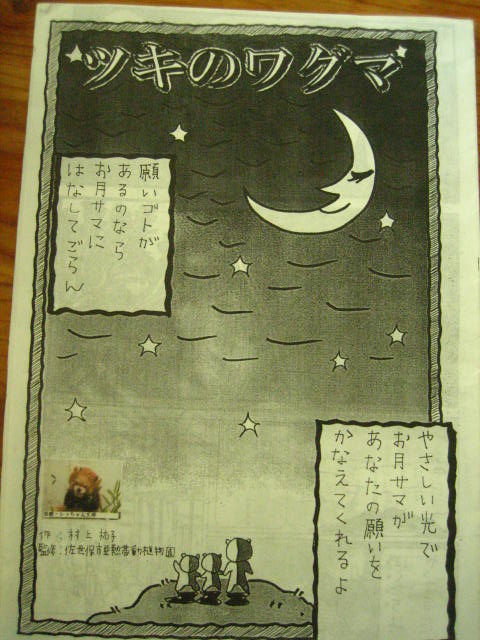 ツキのワグマ
願いゴトが
あるのなら
お月サマに
はなしてごらん
やさしい光で
お月サマが
あなたの願いを
かなえてくれるよ
作：村上祐子
監修：佐世保市亜熱帯動植物園